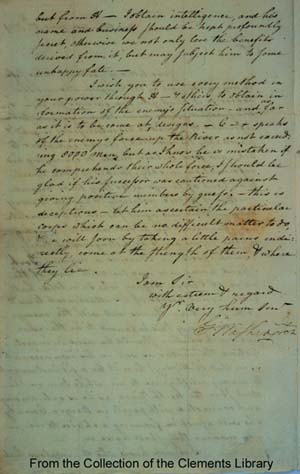 but from H — I obtain intelligence, and his
name and business should be kept profoundly
secret, otherwise we not only lose the benefits
derived from it, but may subject him to some
unhappy fate. —
I wish you to use every method in
your power through H — & others to obtain in-
formation of the enemys situation — and as far
as it is to be come at, designs. — C — r speaks
of the enemys force up the River as not exceed-
ing 8000 Men, but as I know he is mistaken if
he comprehends their whole force, I should be
glad if his successor was cautioned against
giving positive numbers by guess — this is
deceptious — let him ascertain the particular
corps which can be no difficult matter to do,
& he will soon by taking a little pains indi-
rectly, come at the strength of them & where
they lie. —
I am Sir
with esteem & regard
Yr. Very Hum Serv
G Washington
From the Collection of the Clements Library